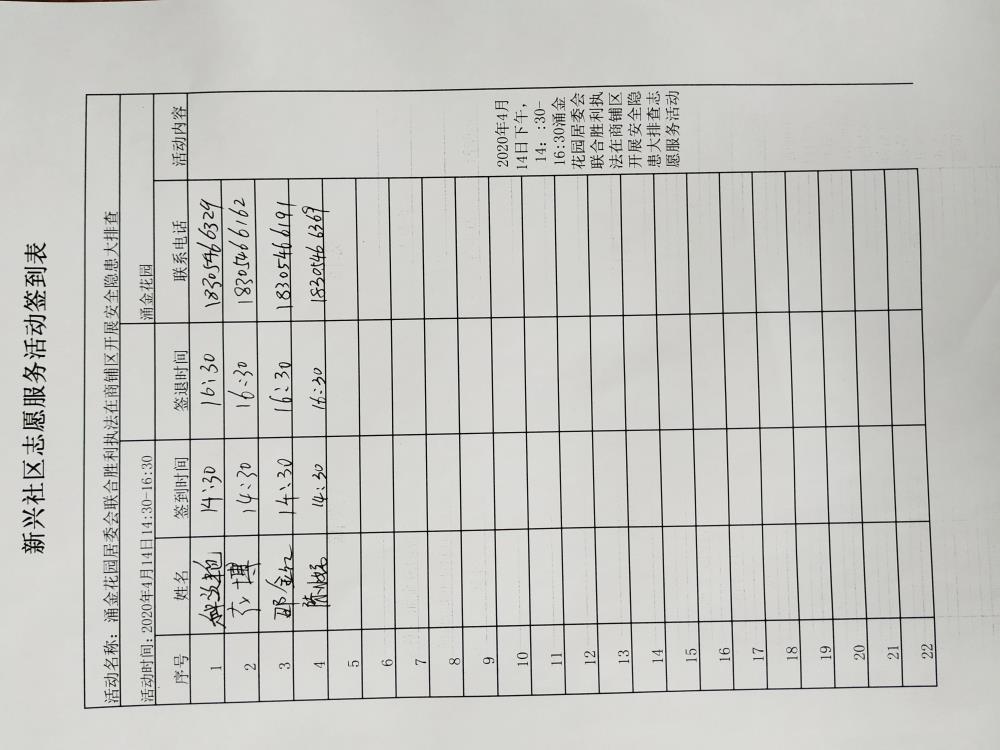 新兴社区志愿服务活动签到表
活动名称：涌金花园居委会联合胜利执法在商铺区开展安全隐患大排查
活动时间：2020年4月14日14:30-16:30 涌金花园
序号 姓名 签到时间 签退时间 联系电话 活动内容
1 14:30 16:30 18305466329
2 博 14:30 16:30 18305466162
3 邵金红 14:30 16:30 18305466191
4 陈 14:30 16:30 18305466369
5
6
7
8
9
10
11
12
13
14
15
16
17
18
19
20
21
22
2020年4月
14日下午，
14：:30-
16:30涌金
花园居委会
联合胜利执
法在商铺区
开展安全隐
患大排查志
愿服务活动